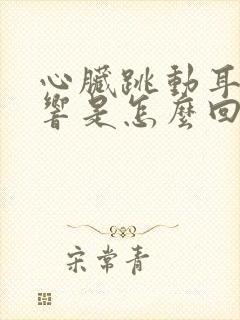 心臟跳動耳
響是怎麼回
宋常青